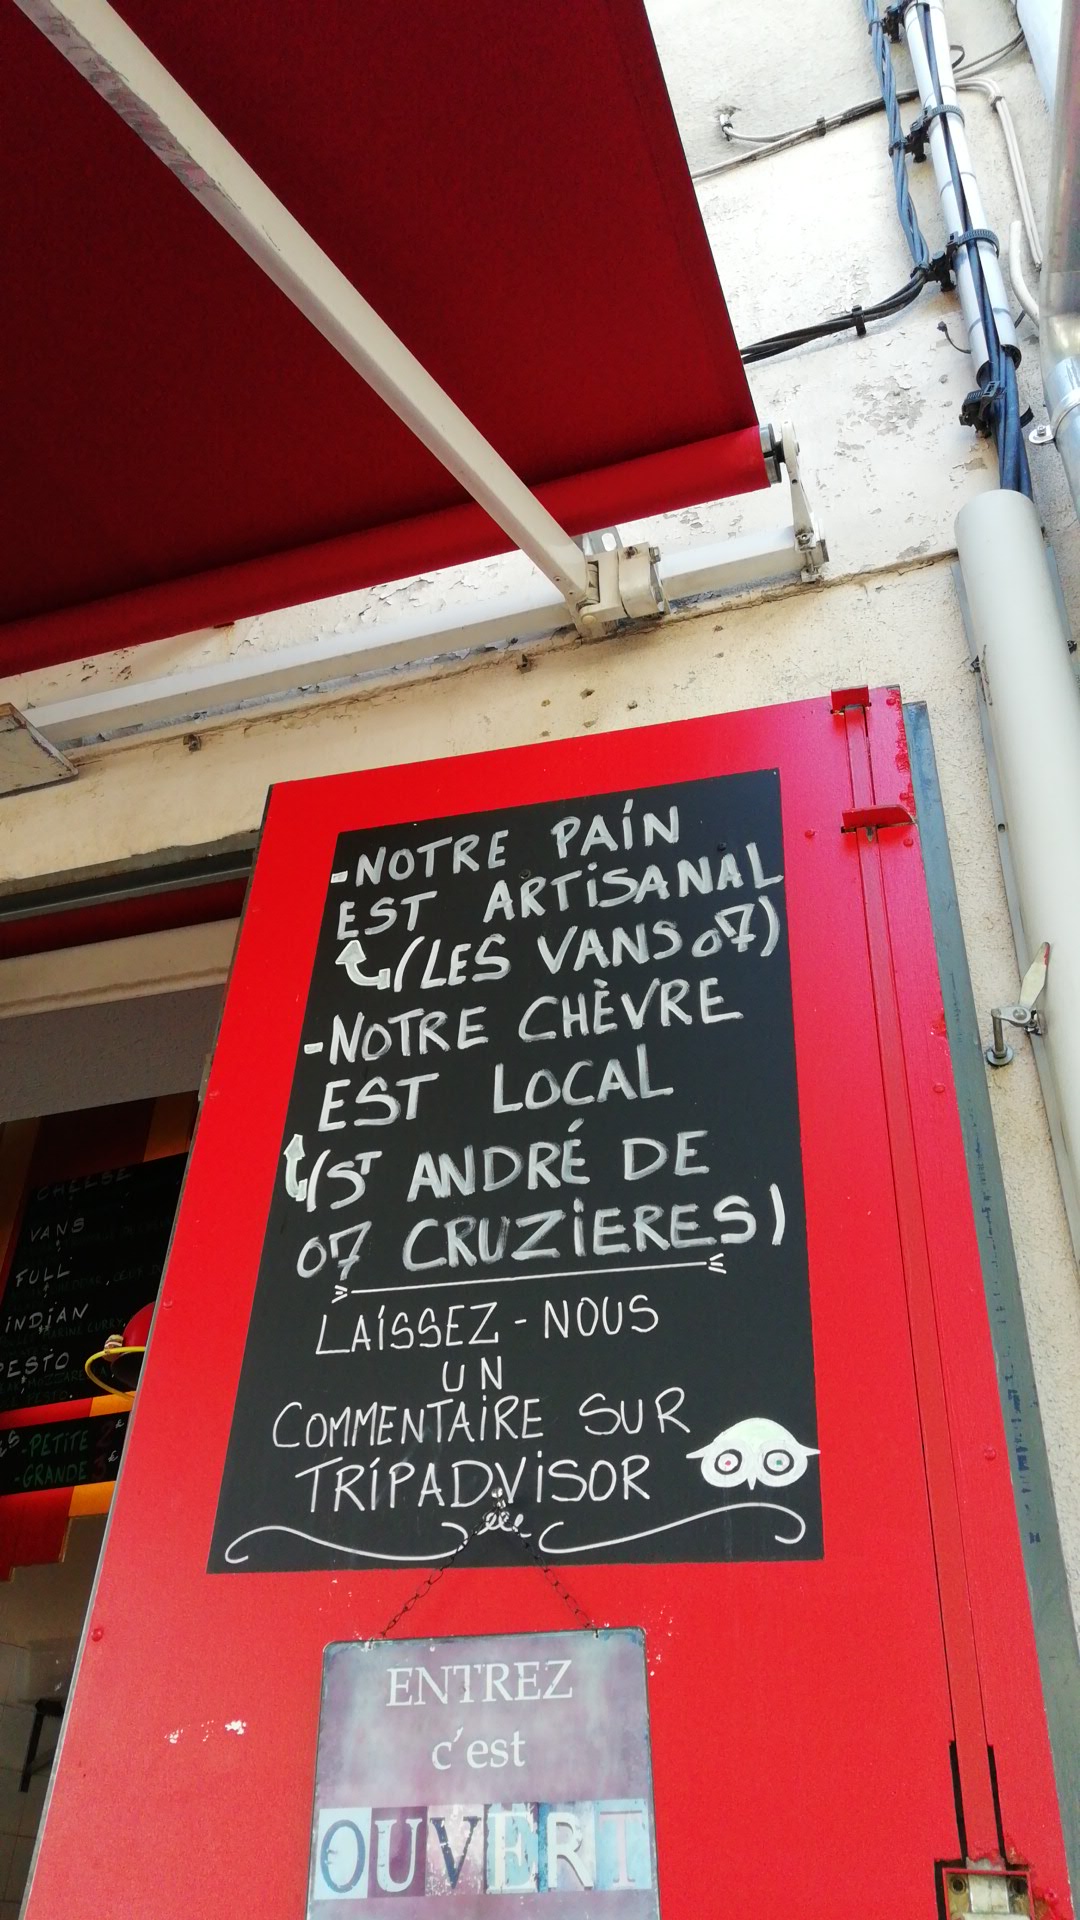 -NOTRE PAIN
EST ARTISANAL
(LES VANS 07)
-NOTRE CHÈVRE
EST LOCAL
(ST ANDRÉ DE
07 CRUZIERES)
LAISSEZ-NOUS
UN
COMMENTAIRE SUR
TRIPADVISOR
ENTREZ
c'est
OUVERT
CHEESE
VANS
FULL
INDIAN
PESTO
-PETITE 2€
-GRANDE 3€